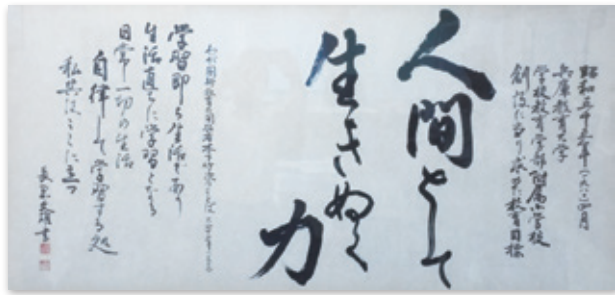 昭和五十五年(一九八〇)四月
兵庫教育大学
学校教育学部附属小学校
創設に当り求めた教育目標
人間として
生きぬく
力
学習即ち生活であり
生活直ちに学習となる
日常一切の生活
自律して学習する処
私共はここに立つ